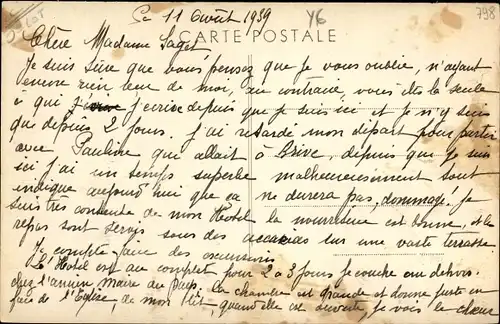 Le 11 Août 1939
Y6
798
LOT
CARTE POSTALE
Chère Madame Saget
Je suis sûre que vous pensez que je vous oublie, n'ayant
encore rien reçu de moi, au contraire, vous êtes la seule
à qui j'écris depuis que je suis ici et je n'y suis
que depuis 2 jours. j'ai retardé mon départ pour partir
avec Pauline qui allait à Brive, depuis que je suis
ici j'ai un temps superbe malheureusement tout
indique aujourd'hui que ça ne durera pas, dommage! je
suis très contente de mon Hôtel la nourriture est bonne, et les
repas sont servis sous des accacias sur une vaste terrasse.
Je compte faire des excursions
L'Hôtel est au complet pour 2 à 3 jours je couche au dehors.
chez l'ancien maire du Pays. la chambre est grande et donne juste en
face de l'Eglise, de mon lit, quand elle est ouverte, je vois le chœur